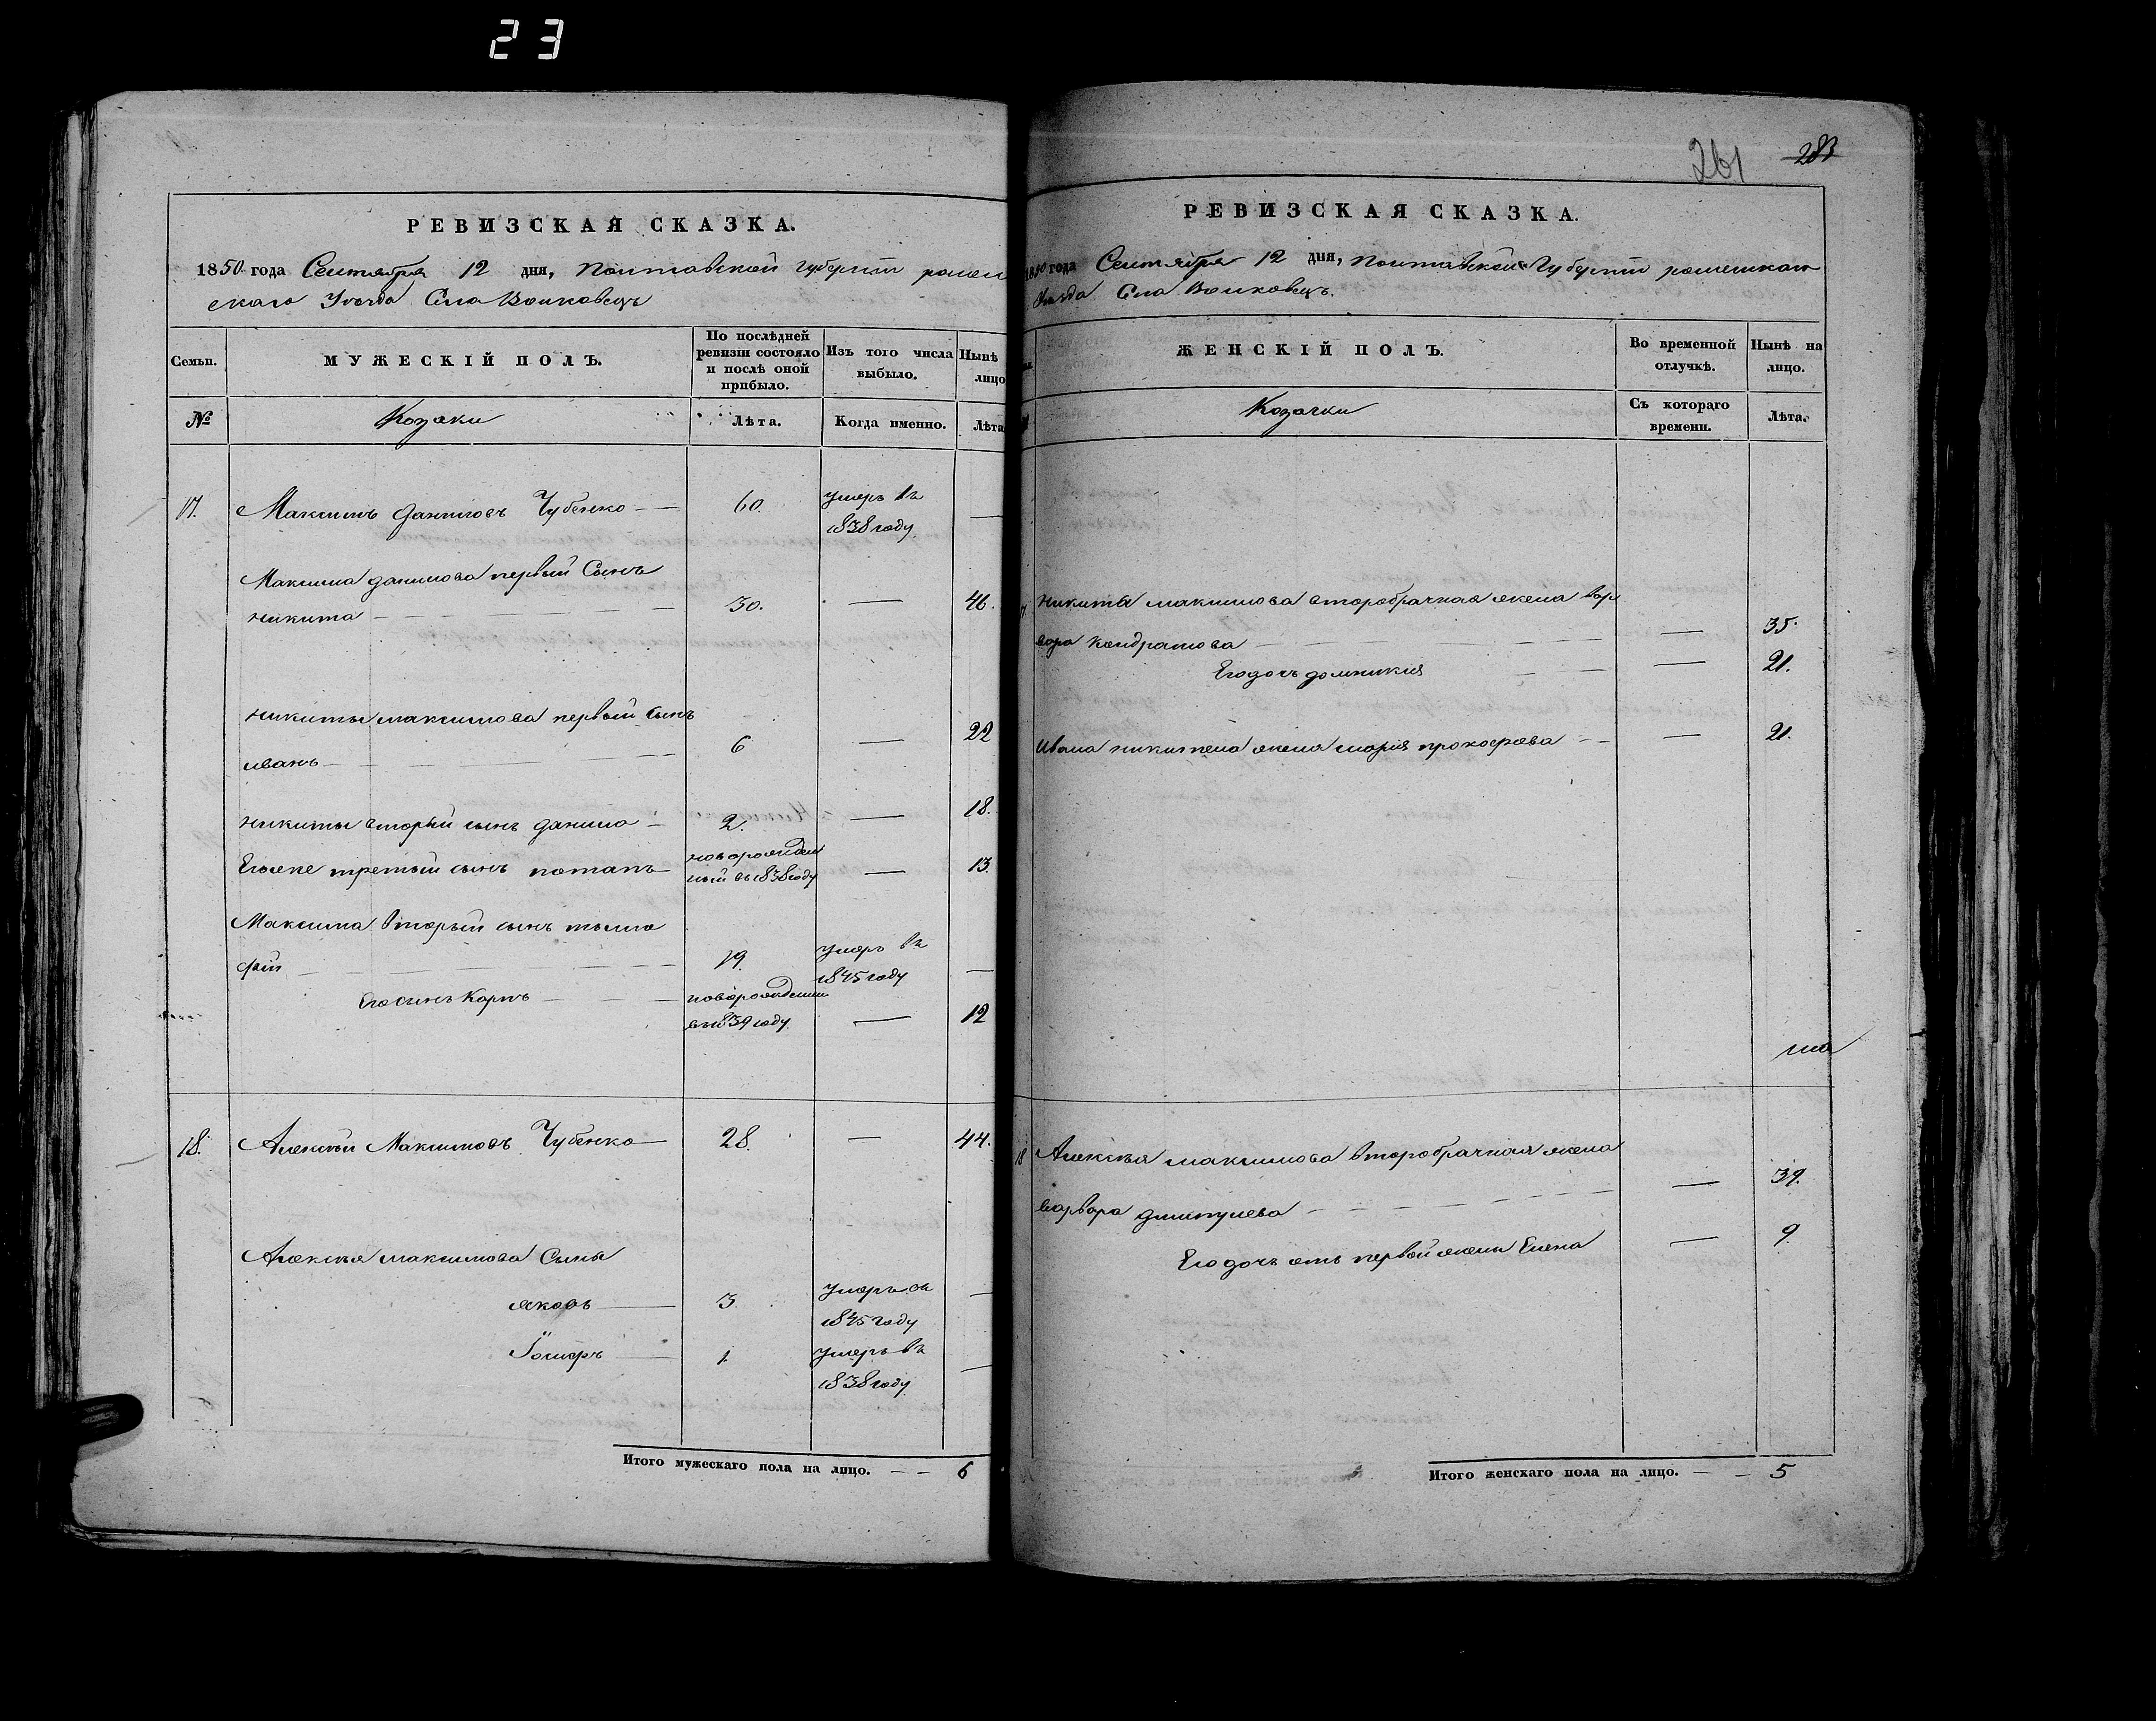 23
РЕВИЗСКАЯ СКАЗКА.
1850 года Сентября 12 дня, Полтавской губернии ромен
скаго Уезда Села Волковецъ
Семьи.
МУЖЕСКІЙ ПОЛЪ.
По послѣдней ревизіи состояло и послѣ оной прибыло.
Изъ того числа выбыло.
Нынѣ лицо
№
Козаки
Лѣта.
Когда именно.
Лѣта
17. Максимъ Даниловъ Чубенко 60. умеръ въ
1838 году
Максима данилова первый Сынъ
никита 30. 46.
никиты максимова первый сынъ
иванъ 6 22
никиты вторый сынъ данило 2. 18.
Егоже третий сынъ потапъ новорожден
ный въ 1838 году 13.
Максима вторый сынъ тымо
фій 19. умеръ въ
1845 году
Его сынъ Карпъ новорожденный
въ 1839 году 12
18. Алексѣй Максимовъ Чубенко 28. 44.
Алексѣя максимова Сыны
яковъ 3 умеръ въ
1845 году
1 умеръ въ
1838 году
Итого мужескаго пола на лицо. 6
261 283
РЕВИЗСКАЯ СКАЗКА.
1850 года Сентября 12 дня, Полтавской Губерніи роменскаго
Уезда Села Волковецъ.
ЖЕНСКІЙ ПОЛЪ.
Во временной отлучкѣ.
Нынѣ на лицо.
Козачки
Съ котораго времени.
Лѣта.
17 никиты максимова второбрачная жена вар
вара кондратова 35.
Его дочь домникия 21.
Ивана никитена жена мария прокофева 21.
18 Алексѣя максимова второбрачная жена
варвара дмитриева 39.
Его дочь отъ первой жены Елена 9.
Итого женскаго пола на лицо. 5